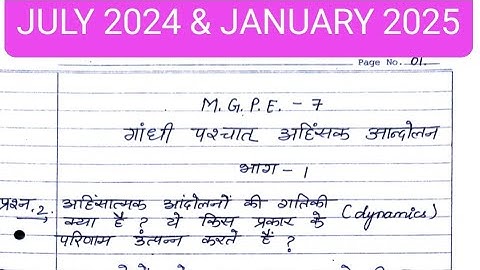 JULY 2024 & JANUARY 2025
Page No. 01.
M.G.P.E. - 7
गांधी पश्चात अहिंसक आन्दोलन
भाग - 1
प्रश्न.2, अहिंसात्मक आंदोलनों की गतिकी (dynamics)
क्या है ? ये किस प्रकार के
परिणाम उत्पन्न करते हैं ?